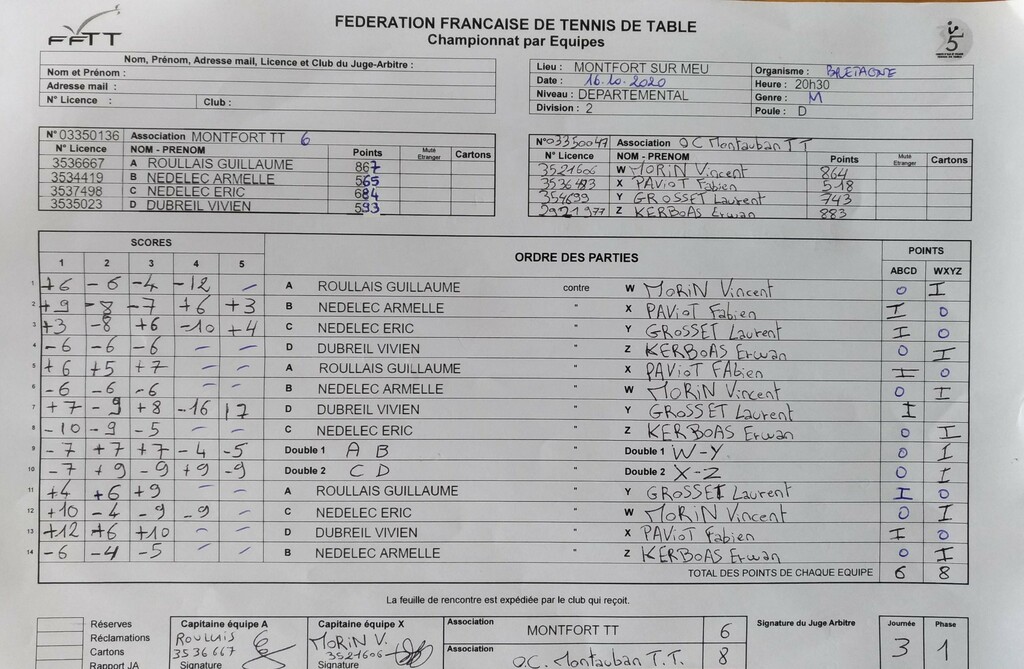 FFTT
FEDERATION FRANCAISE DE TENNIS DE TABLE
Championnat par Equipes
Nom, Prénom, Adresse mail, Licence et Club du Juge-Arbitre :
Nom et Prénom :
Adresse mail :
N° Licence : Club :
Lieu : MONTFORT SUR MEU Organisme : BRETAGNE
Date : 16.10.2020 Heure : 20h30
Niveau : DEPARTEMENTAL Genre : M
Division : 2 Poule : D
N° 03350136 Association MONTFORT TT 6
N° Licence NOM - PRENOM Points Muté Etranger Cartons
3536667 A ROULLAIS GUILLAUME 867
3534419 B NEDELEC ARMELLE 565
3537498 C NEDELEC ERIC 684
3535023 D DUBREIL VIVIEN 593
N° 03350047 Association O C Montauban TT
N° Licence NOM - PRENOM Points Muté Etranger Cartons
3521606 W MORIN Vincent 864
3536483 X PAVIOT Fabien 518
354699 Y GROSSET Laurent 743
2921977 Z KERBOAS Erwan 883
SCORES ORDRE DES PARTIES POINTS
1 2 3 4 5 ABCD WXYZ
1 +6 -6 -4 -12 - A ROULLAIS GUILLAUME contre W MORIN Vincent 0 I
2 +9 -8 -7 +6 +3 B NEDELEC ARMELLE " X PAVIOT Fabien I 0
3 +3 -8 +6 -10 +4 C NEDELEC ERIC " Y GROSSET Laurent I 0
4 -6 -6 -6 - - D DUBREIL VIVIEN " Z KERBOAS Erwan 0 I
5 +6 +5 +7 - - A ROULLAIS GUILLAUME " X PAVIOT FAbien I 0
6 -6 -6 -6 - - B NEDELEC ARMELLE " W MORIN Vincent 0 I
7 +7 -9 +8 -16 17 D DUBREIL VIVIEN " Y GROSSET Laurent I
8 -10 -9 -5 - - C NEDELEC ERIC " Z KERBOAS Erwan 0 I
9 -7 +7 +7 -4 -5 Double 1 A B " Double 1 W-Y 0 I
10 -7 +9 -9 +9 -9 Double 2 C D " Double 2 X-Z 0 I
11 +4 +6 +9 - - A ROULLAIS GUILLAUME " Y GROSSET Laurent I 0
12 +10 -4 -9 -9 - C NEDELEC ERIC " W MORIN Vincent 0 I
13 +12 +6 +10 - - D DUBREIL VIVIEN " X PAVIOT Fabien I 0
14 -6 -4 -5 - - B NEDELEC ARMELLE " Z KERBOAS Erwan 0 I
TOTAL DES POINTS DE CHAQUE EQUIPE 6 8
La feuille de rencontre est expédiée par le club qui reçoit.
Réserves
Réclamations
Cartons
Rapport JA
Capitaine équipe A
ROULLAIS
3536667
Signature
Capitaine équipe X
MORIN V.
3521606
Signature
Association MONTFORT TT 6
Association O.C. Montauban T.T. 8
Signature du Juge Arbitre
Journée Phase
3 1